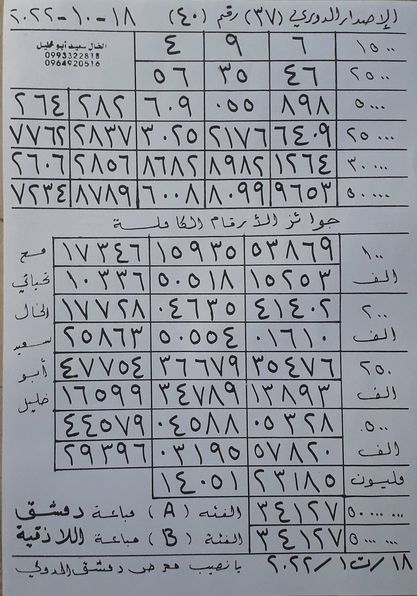 الإصدار الدوري (٣٧) رقم (٤٠) ١٨-١٠-٢٠٢٢
الخال سعيد أبو خليل
0993322818
0964920516
١٥٠٠ ٦ ٩ ٤
٢٥٠٠ ٤٦ ٣٥ ٥٦
٥٠٠٠ ٨٩٨ ٠٥٥ ٦٠٩ ٢٨٢ ٢٦٤
٢٥٠٠٠ ٦٤٠٩ ٢١٧٦ ٣٠٢٥ ٢٨٣٧ ٧٧٦٢
٣٠٠٠٠ ١٢٦٤ ٨٩٨٢ ٨٦٨٢ ٢٨٥٦ ٢٦٠٦
٥٠٠٠٠ ٩٦٥٣ ٨٠٩٩ ٦٠٠٨ ٨٧٨٩ ٧٢٣٤
جوائز الأرقام الكاملة
١٠٠ ٥٣٨٦٩ ١٥٩٣٥ ١٧٣٤٦ مع
الف ١٥٢٥٣ ٥٠٥١٨ ١٠٣٣٦ تحياتي
٢٠٠ ٤١٤٠٢ ٠٤٦٣٥ ١٧٧٢٨ الخال
الف ٠١٦١٠ ٥٠٥٥٤ ٢٥٨٦٣ سعيد
٢٥٠ ٣٥٤٧٦ ٣٦٦٧٩ ٤٧٧٥٤ أبو
الف ١٣٨٩٣ ٣٤٧٨٩ ١٦٥٩٩ خليل
٥٠٠ ٠٥٣٢٨ ٠٤٥٨٨ ٤٤٥٧٩
الف ٥٧٨٢٠ ٠٣١٩٥ ٢٩٣٩٦
مليون ٢٣١٨٥ ١٤٠٥١
٥٠٠٠٠٠٠٠ ٣٤١٢٧ الفئه (A) مباعة دمشق
٥٠٠٠٠٠٠ ٣٤١٢٧ الفئة (B) مباعة اللاذقية
١٨/ت١/٢٠٢٢ يانصيب معرض دمشق الدولي